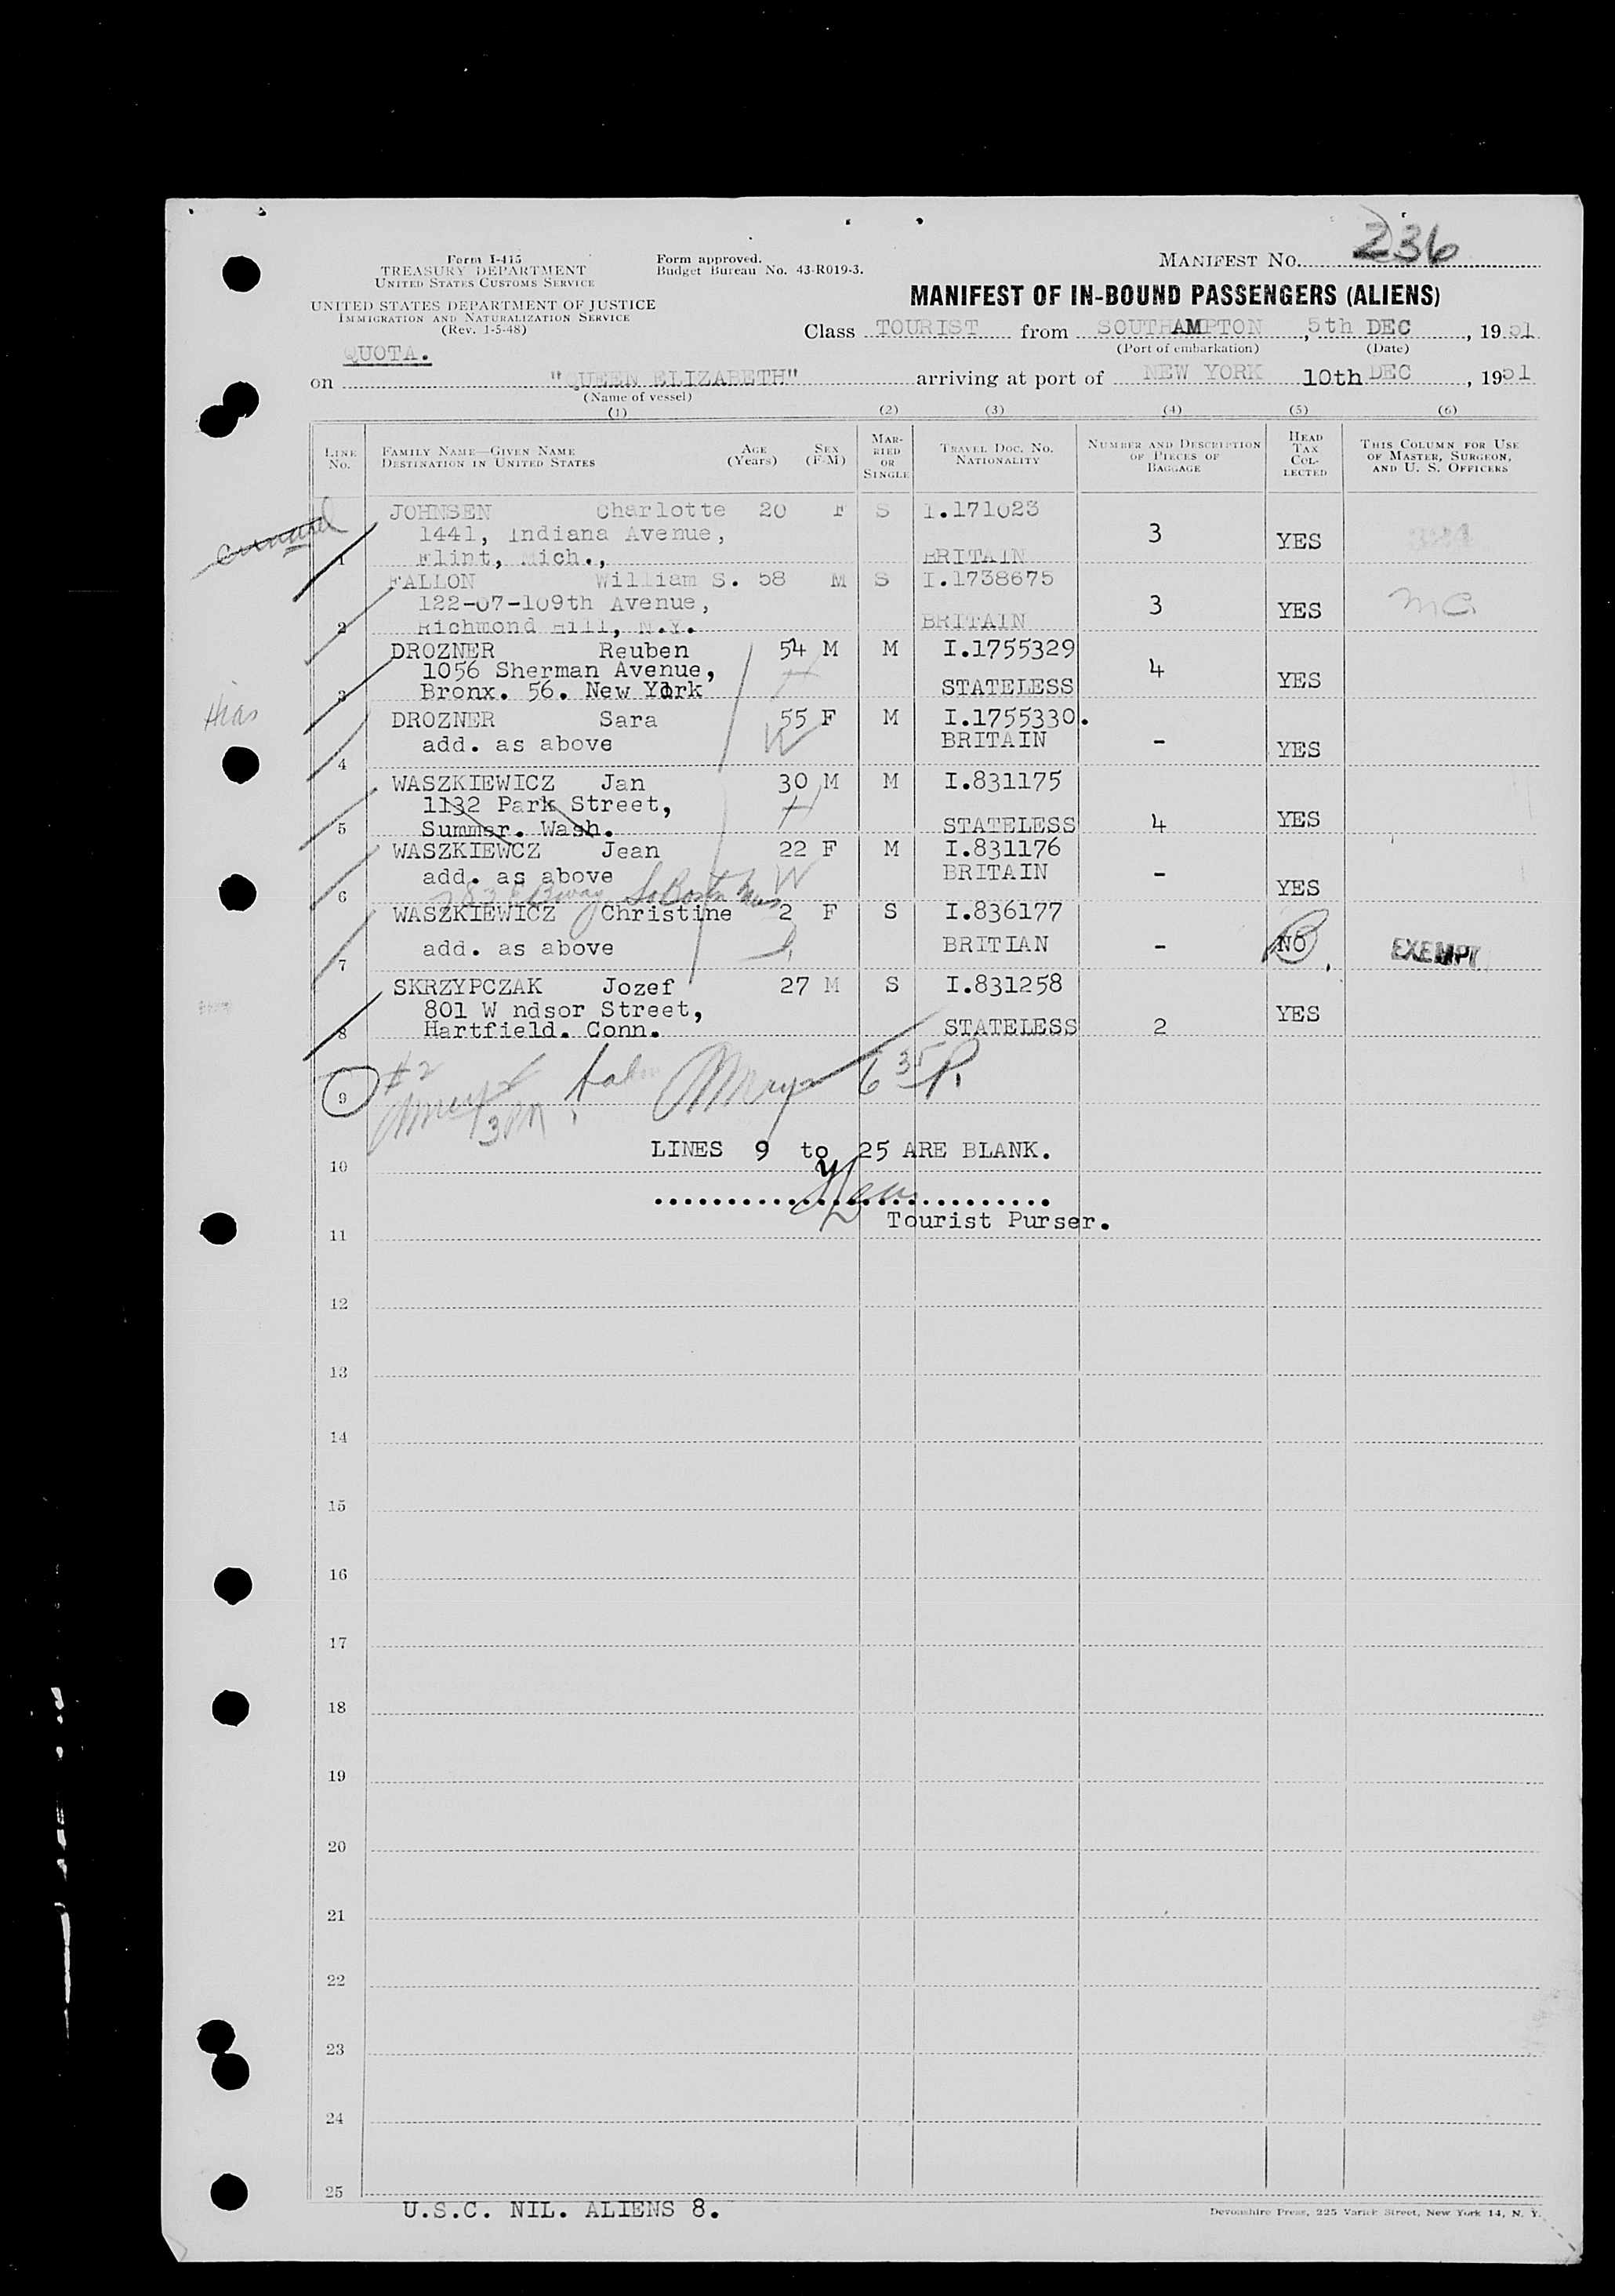 236
Form I-415
TREASURY DEPARTMENT
UNITED STATES CUSTOMS SERVICE
Form approved.
Budget Bureau No. 43-R019-3.
MANIFEST NO.
UNITED STATES DEPARTMENT OF JUSTICE
IMMIGRATION AND NATURALIZATION SERVICE
(Rev. 1-5-48)
MANIFEST OF IN-BOUND PASSENGERS (ALIENS)
Class TOURIST from SOUTHAMPTON, 5th DEC, 1951
(Port of embarkation) (Date)
QUOTA.
on "QUEEN ELIZABETH" arriving at port of NEW YORK 10th DEC, 1951
(Name of vessel)
(1) (2) (3) (4) (5) (6)
LINE NO. FAMILY NAME—GIVEN NAME DESTINATION IN UNITED STATES AGE (Years) SEX (F-M) MARRIED OR SINGLE TRAVEL DOC. NO. NATIONALITY NUMBER AND DESCRIPTION OF PIECES OF BAGGAGE HEAD TAX COLLECTED THIS COLUMN FOR USE OF MASTER, SURGEON, AND U. S. OFFICERS
cunard
JOHNSEN Charlotte 20 F S I.171023
1441, Indiana Avenue, 3 YES
1 Flint, Mich., BRITAIN
FALLON William S. 58 M S I.1738675
122-07-109th Avenue, 3 YES MC
2 Richmond Hill, N.Y. BRITAIN
DROZNER Reuben 54 M M I.1755329
1056 Sherman Avenue, H 4 YES
3 Bronx. 56. New York STATELESS
Hias
DROZNER Sara 55 F M I.1755330.
add. as above W BRITAIN - YES
4
WASZKIEWICZ Jan 30 M M I.831175
1132 Park Street, H
5 Summer. Wash. STATELESS 4 YES
WASZKIEWCZ Jean 22 F M I.831176
add. as above W BRITAIN - YES
6 Bway So Boston Mass
WASZKIEWICZ Christine 2 F S I.836177
add. as above BRITIAN - NO EXEMPT
7
SKRZYPCZAK Jozef 27 M S I.831258
801 W ndsor Street, YES
8 Hartfield. Conn. STATELESS 2
#2 6 35 P.
9
3 PM
LINES 9 to 25 ARE BLANK.
10
Tourist Purser.
11
12
13
14
15
16
17
18
19
20
21
22
23
24
25
U.S.C. NIL. ALIENS 8.
Devonshire Press, 225 Varick Street, New York 14, N. Y.